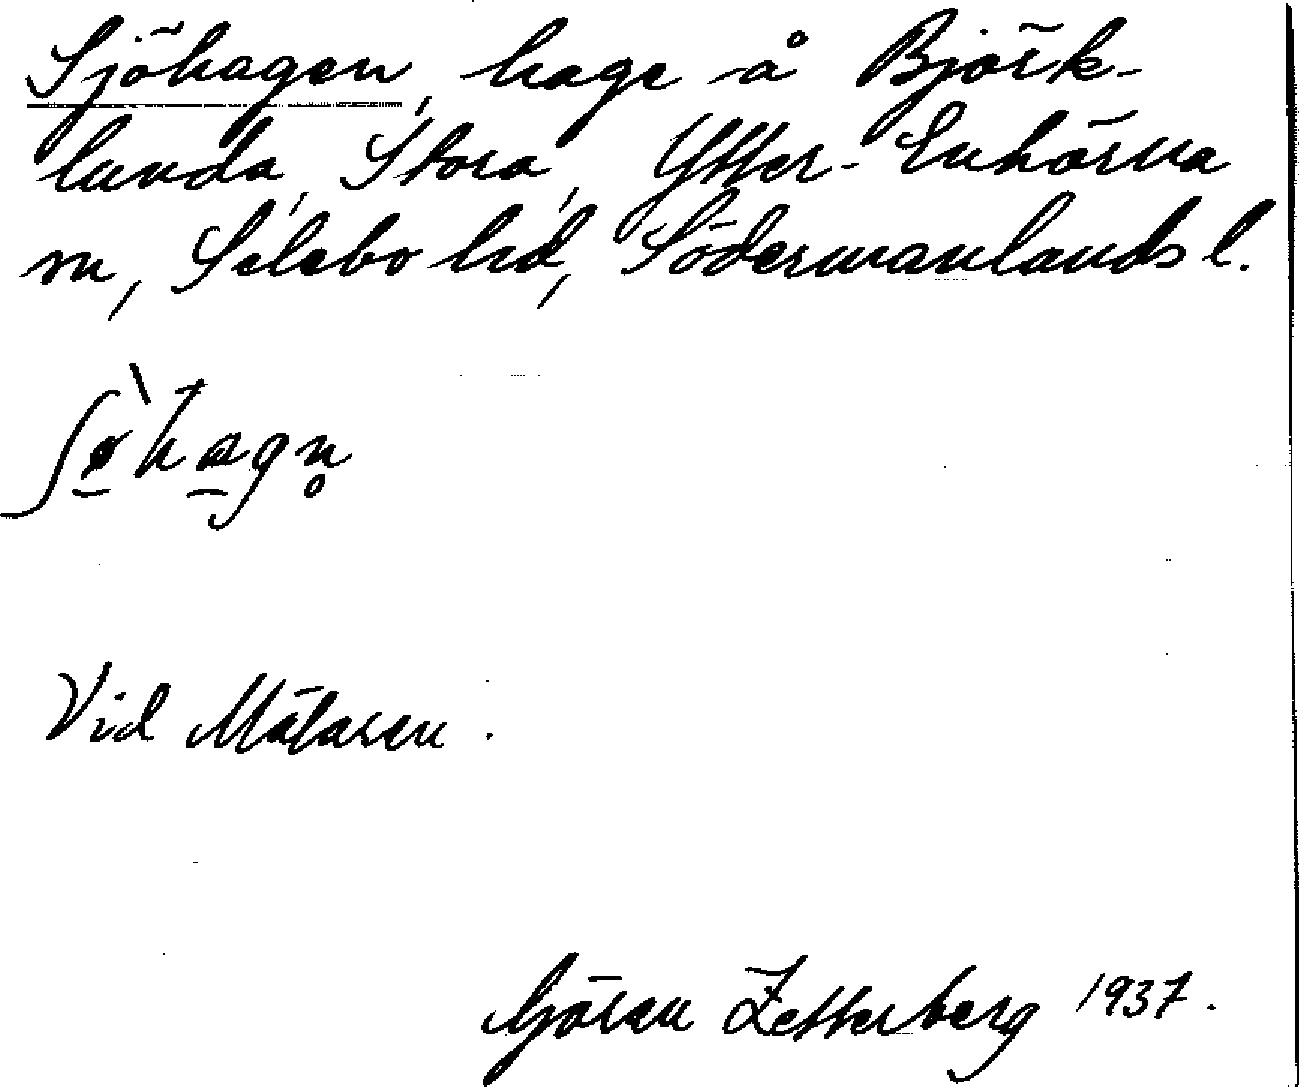 Sjöhagen, hage å Björk-
lunda, Stora, Ytter-Enhörna
sn, Selebo hd, Södermanlands l.
Vid Mälaren.
Göran Zetterberg 1937.